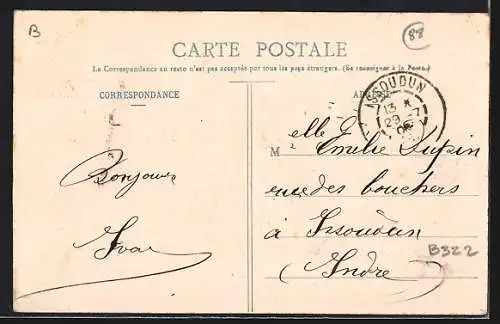 B
88
CARTE POSTALE
La Correspondance au recto n'est pas acceptée par tous les pays étrangers. (Se renseigner à la Poste.)
CORRESPONDANCE
ADRESSE
ISSOUDUN
13
29 -7
06
Bonjour
M elle Emilie Lupin
rue des bouchers
à Issoudun
B322
(Indre)